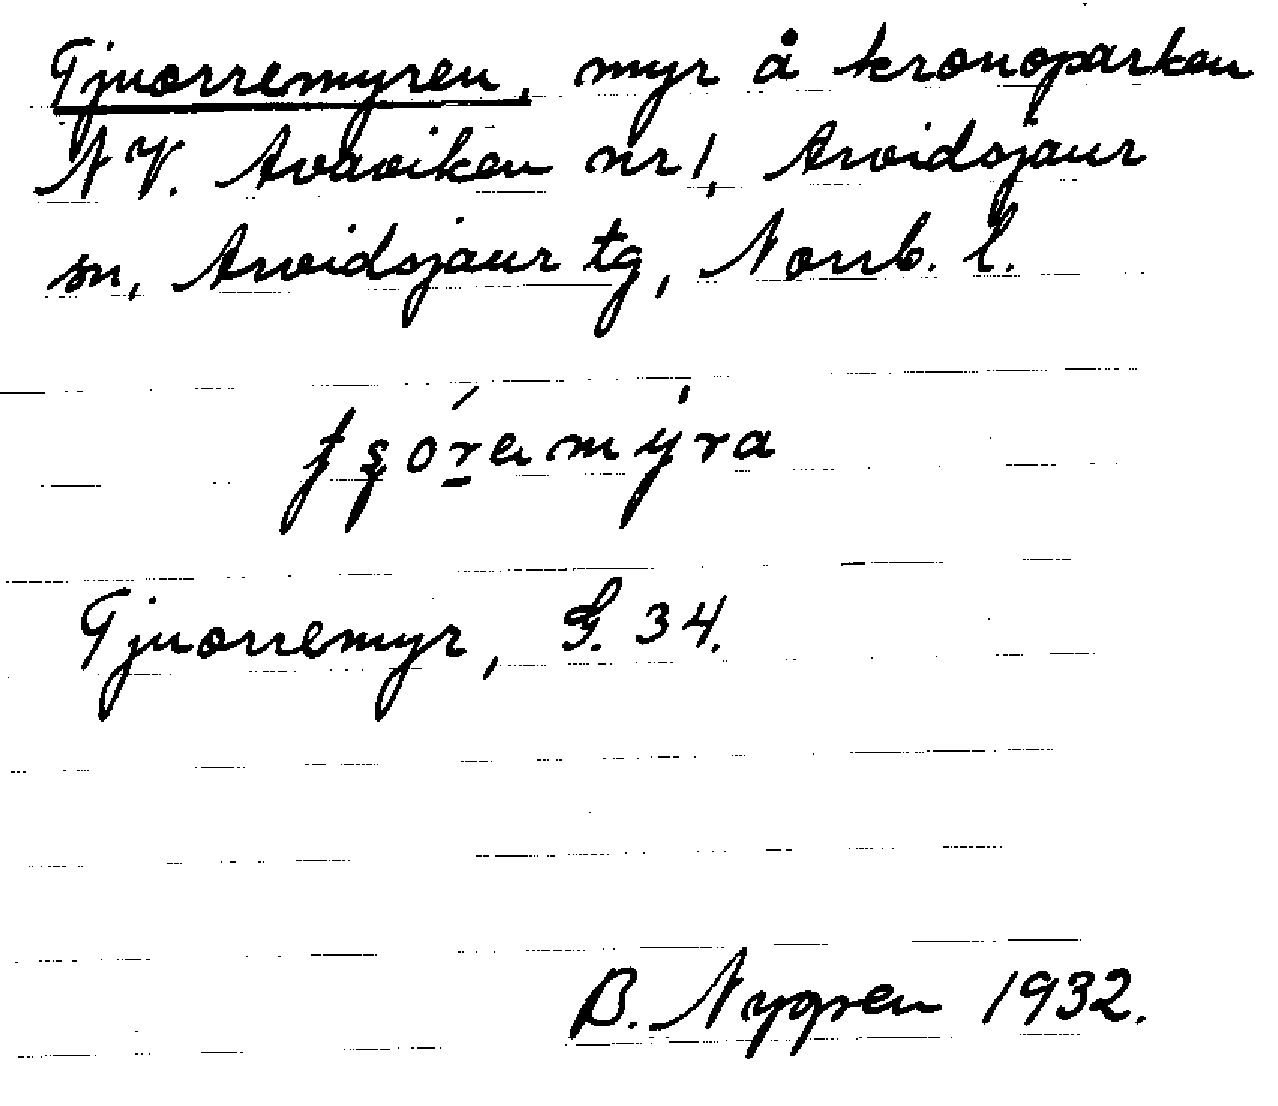 Tjuorremyren, myr å kronoparken
N V. Avaviken nr 1, Arvidsjaur
sn, Arvidsjaur tg, Norrb. l.
Tjuorremyr, G. 34.
B. Nygren 1932.